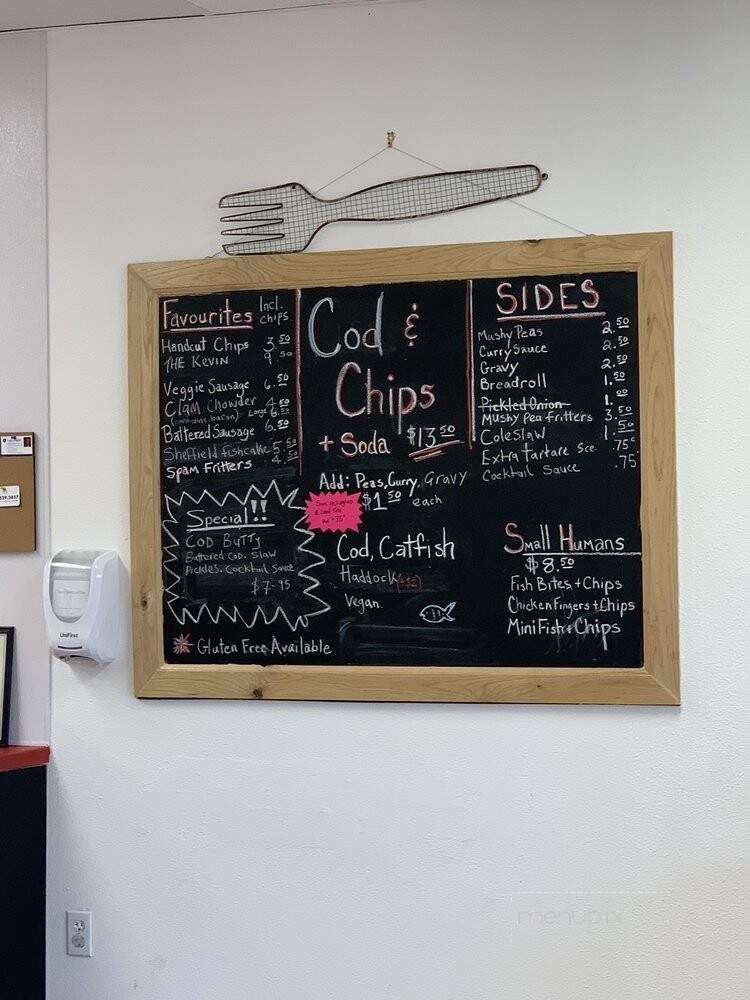 Favourites Incl. chips
Handcut Chips 3.50
THE KEVIN 9.50
Veggie Sausage 6.50
Clam Chowder 4.50
(contains bacon) Large 6.50
Battered Sausage 6.50
Sheffield fishcake 5.50
Spam Fritters 4.50
Special!!
COD BUTTY
Battered Cod, Slaw
Pickles, Cocktail Sauce
$7.95
Gluten Free Available
Cod &
Chips
+ Soda $13.50
Add: Peas, Curry, Gravy
$1.50 each
Cod, Catfish
Haddock
Vegan.
SIDES
Mushy Peas 2.50
Curry Sauce 2.50
Gravy 2.50
Breadroll 1.50
Pickled Onion 1.00
Mushy Pea Fritters 3.50
Coleslaw 1.50
Extra Tartare Sce. .75
Cocktail Sauce .75
Small Humans
$8.50
Fish Bites + Chips
Chicken Fingers + Chips
Mini Fish + Chips
UniFirst
menupix